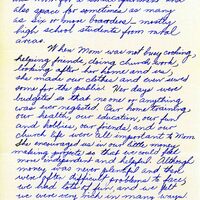 also space for sometimes as many
as six or more boarders - mostly
high school students from rural
areas.
When Mom was not busy cooking,
helping friends, doing church work,
looking after her home and us,
she made our clothes and even sewed
some for the public. Her days were
budgeted so that no one or anything
was ever neglected. Our home training,
our health, our education, our fun
and hobbies, our friends, and our
church life were all important to Mom.
She encouraged us in our little money-
making projects so that we could feel
more independent and helpful. Although
money was never plentiful and there
were often difficult problems to face,
we had lots of fun, and we felt
we were very rich in many ways